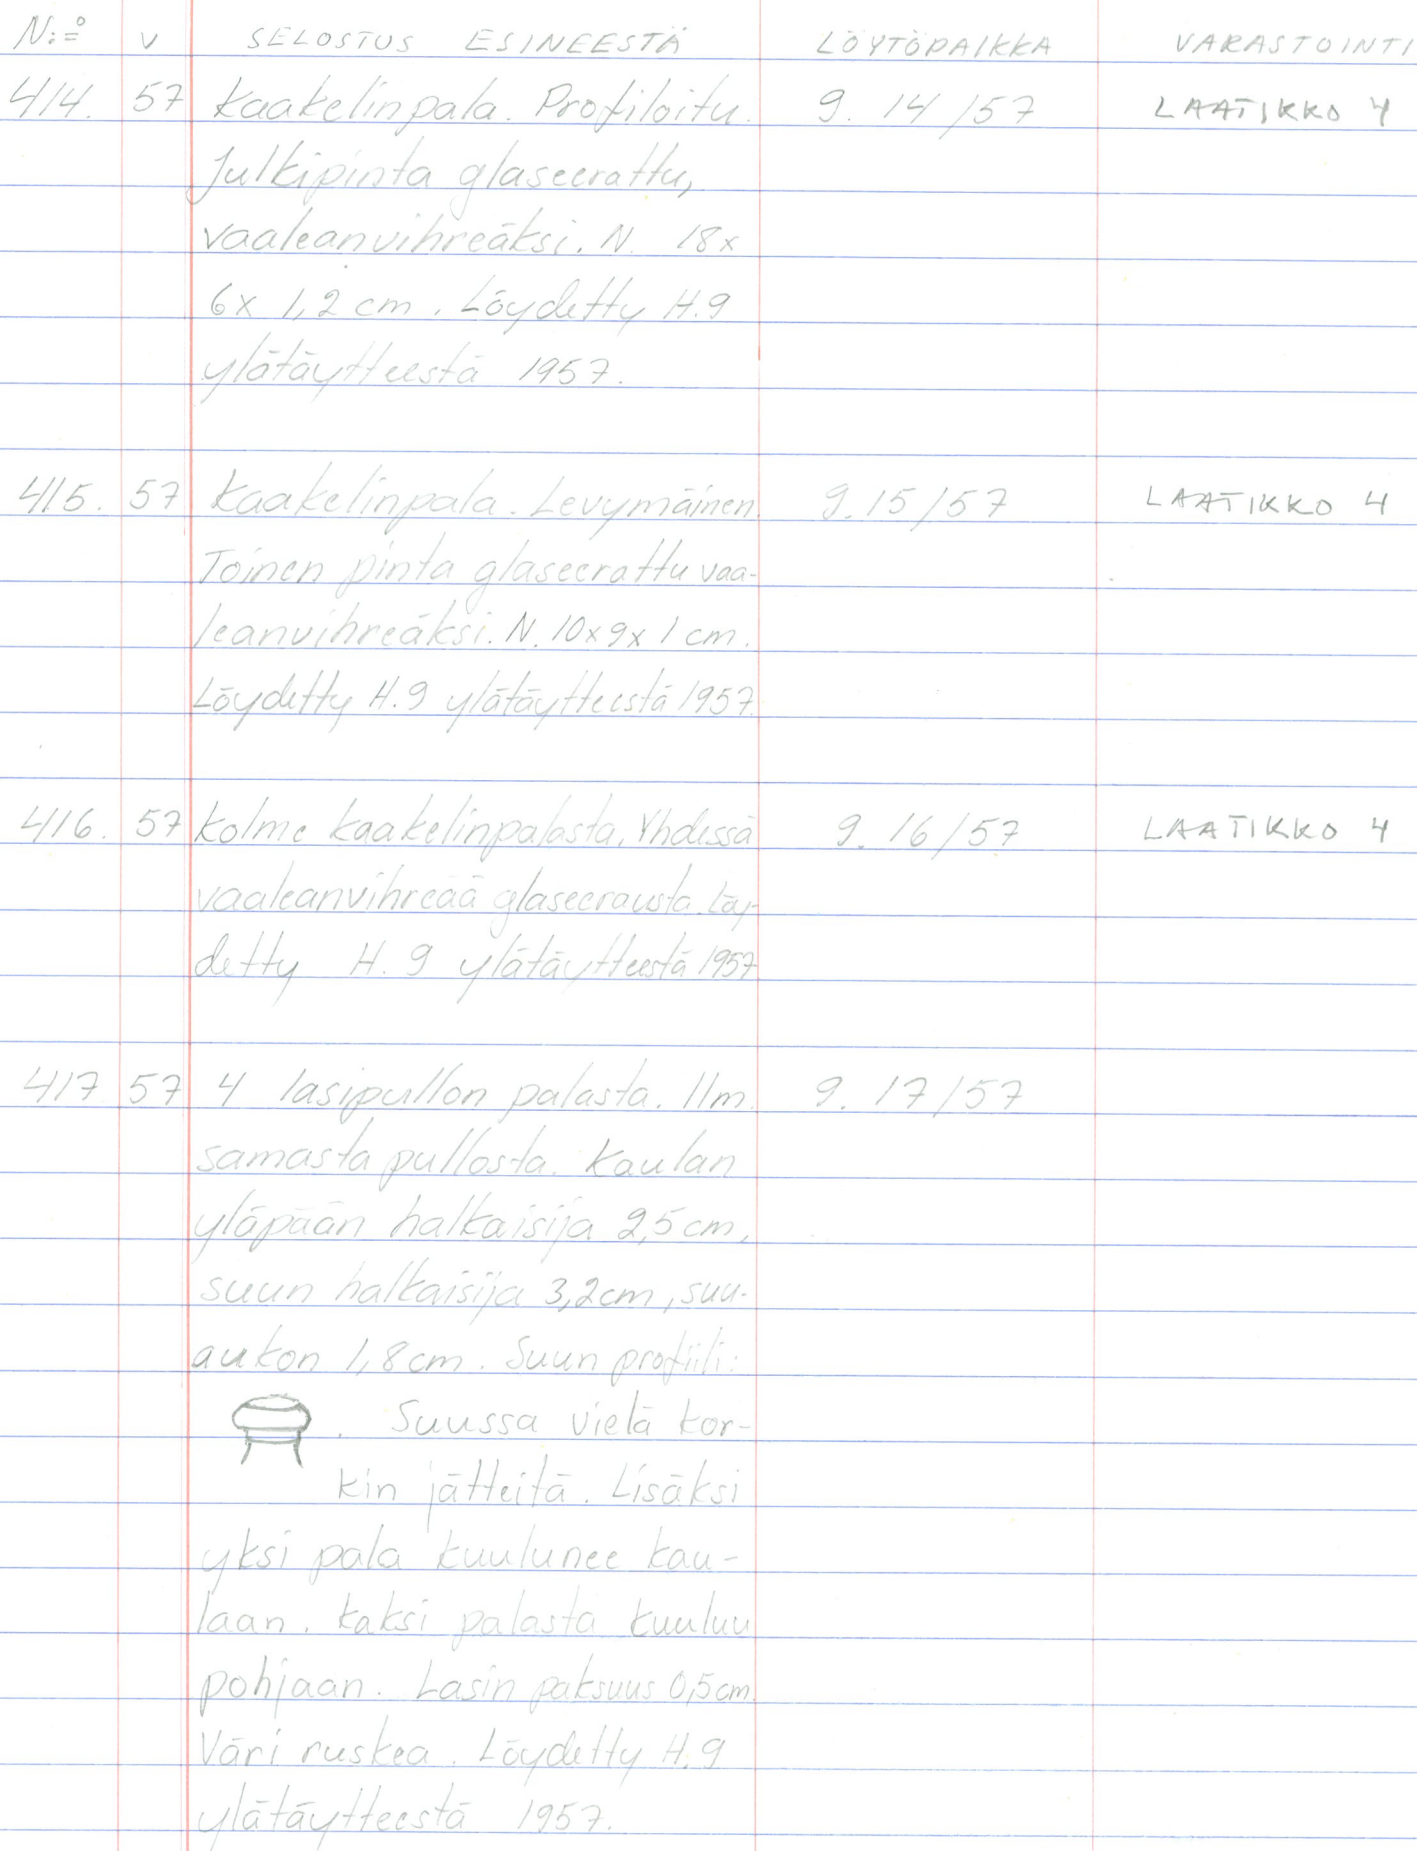 N:o V SELOSTUS ESINEESTÄ LÖYTÖPAIKKA VARASTOINTI
414. 57 Kaakelinpala. Profiloitu. 9. 14/57 LAATIKKO 4
Julkipinta glaseerattu,
vaaleanvihreäksi. N. 18x
6x 1,2 cm. Löydetty H.9
ylätäytteestä 1957.
415. 57 Kaakelinpala. Levymäinen. 9.15/57 LAATIKKO 4
Toinen pinta glaseerattu vaa-
leanvihreäksi. N. 10x9x1 cm.
Löydetty H.9 ylätäytteestä 1957.
416. 57 Kolme kaakelinpalasta. Yhdessä 9. 16/57 LAATIKKO 4
vaaleanvihreää glaseerausta. Löy-
detty H. 9 ylätäytteestä 1957
417 57 4 lasipullon palasta. Ilm. 9. 17/57
samasta pullosta. Kaulan
yläpään halkaisija 2,5 cm,
suun halkaisija 3,2cm, suu-
aukon 1,8cm. Suun profiili:
. Suussa vielä kor-
kin jätteitä. Lisäksi
yksi pala kuulunee kau-
laan. Kaksi palasta kuuluu
pohjaan. Lasin paksuus 0,5cm.
Väri ruskea. Löydetty H.9
ylätäytteestä 1957.